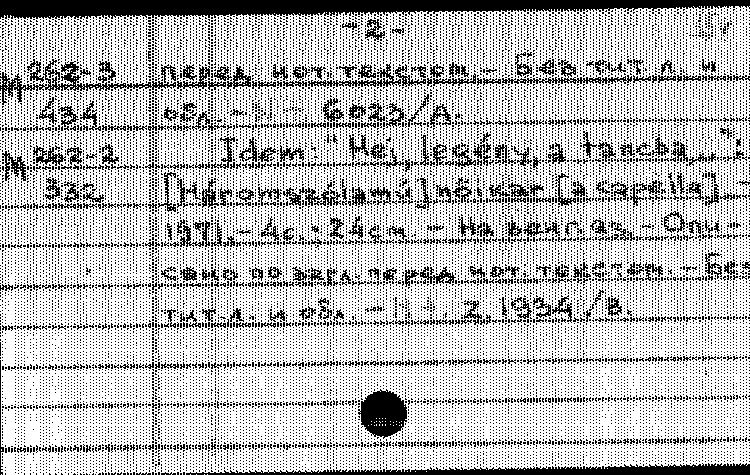 -2-
М 262-3 перед нот. текстом. - Без тит. л. и
434 обл. - Н : 6023/А.
М 262-2 Idem: "Hej, legény, a táncba..":
332 [Háromszólamú] nőikar [a capella]. -
1971. - 4 с.; 24 см. - На венг. яз. - Опи-
сано по загл. перед нот. текстом. - Без
тит. л. и обл. - Н : Z. 1934/В.